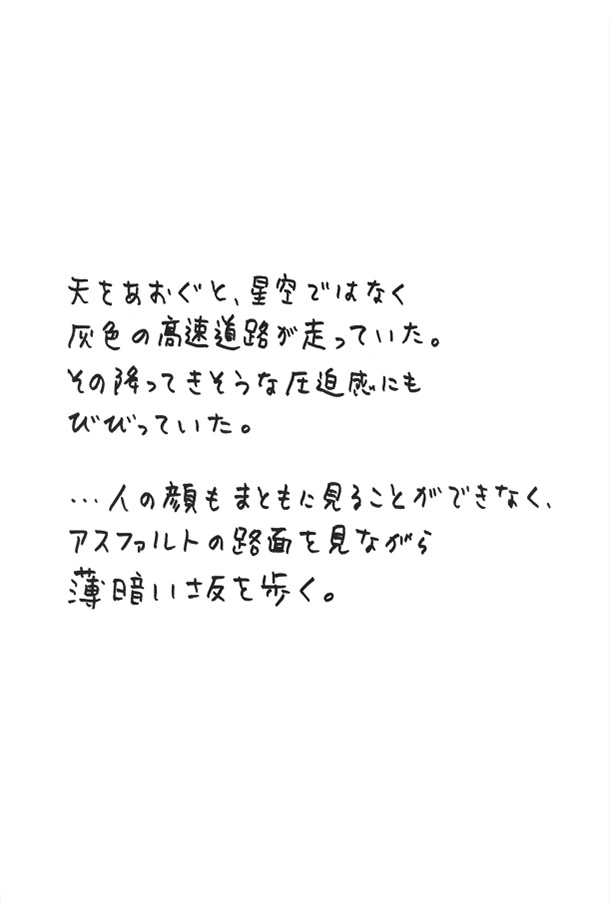 天をあおぐと、星空ではなく
灰色の高速道路が走っていた。
その降ってきそうな圧迫感にも
びびっていた。
…人の顔もまともに見ることができなく、
アスファルトの路面を見ながら
薄暗い坂を歩く。